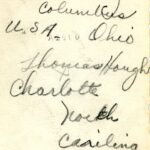 Columbus
U.S.A. Ohio
Thomas Hough
Charlotte
North
Carilina